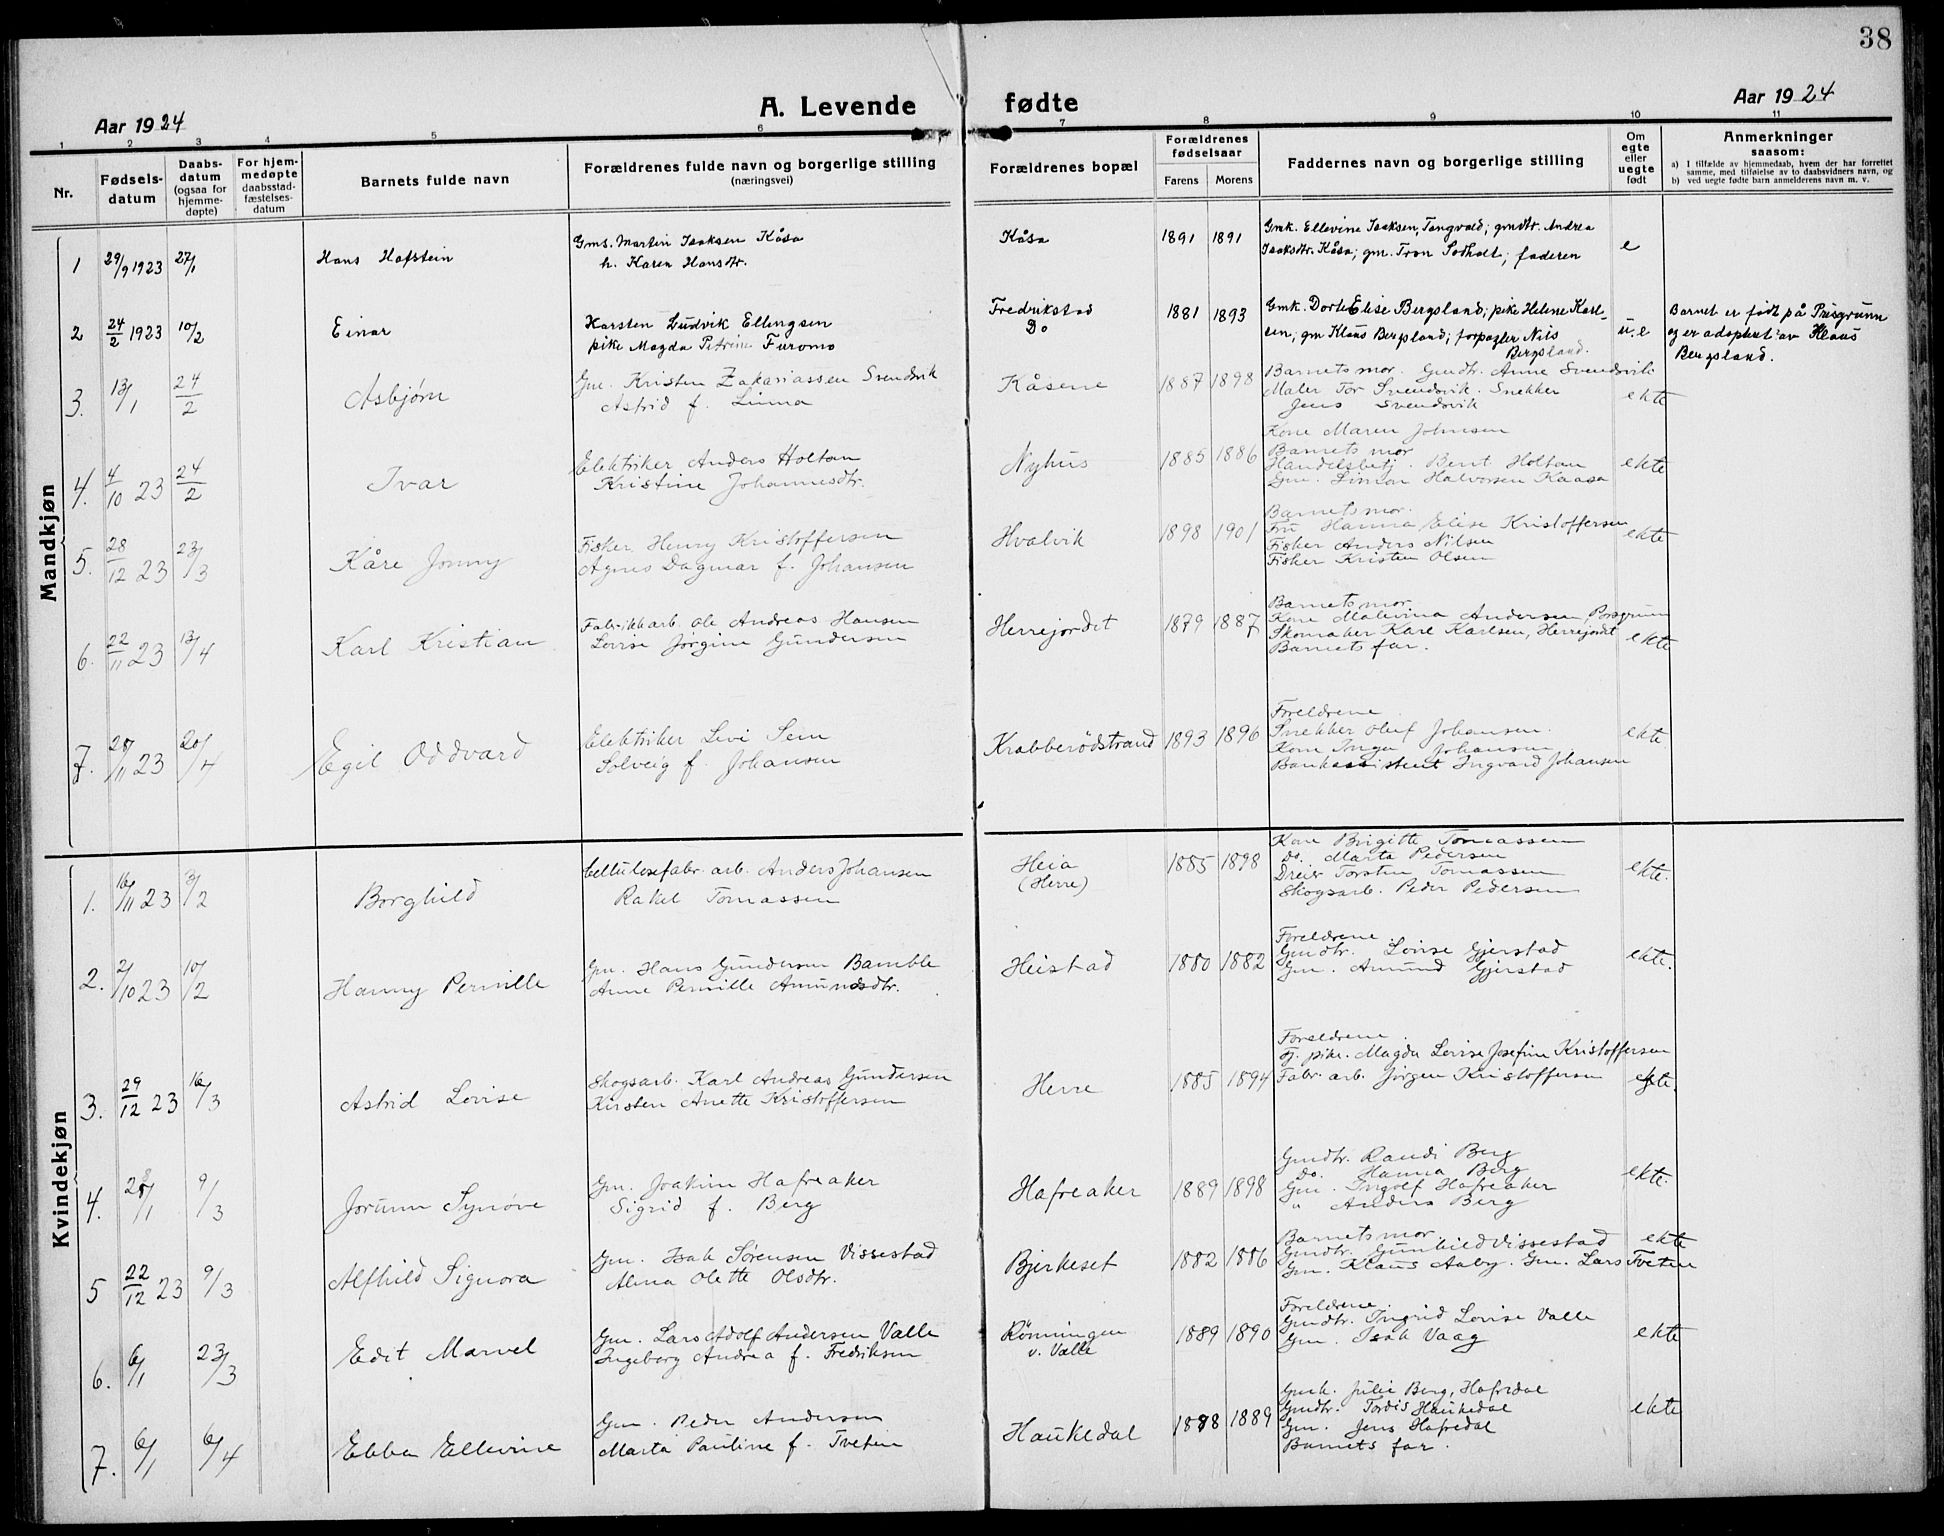 38
Aar 1924
A. Levende fødte
Aar 1924
1 2 3 4 5 6 7 8 9 10 11
Nr.
Fødsels-
datum
Daabs-
datum
(ogsaa for
hjemme-
døpte)
For hjem-
medøpte
daabsstad-
fæstelses-
datum
Barnets fulde navn
Forældrenes fulde navn og borgerlige stilling
(næringsvei)
Forældrenes bopæl
Forældrenes
fødselsaar
Farens Morens
Faddernes navn og borgerlige stilling
Om
egte
eller
uegte
født
Anmerkninger
saasom:
a) I tilfælde av hjemmedaab, hvem der har forrettet
samme, med tilføielse av to daabsvidners navn, og
b) ved uegte fødte barn anmelderens navn m. v.
Mandkjøn
1 29/9 1923 27/1 Hans Hafstein
Gms. Martin Isaksen Kåsa
h. Karen Hansdtr.
Kåsa 1891 1891
Gmk. Ellevine Isaksen, Tangvald; gmdtr. Andrea
Isaksdtr. Kåsa; gm. Tron Sodholt; faderen
e
2 24/2 1923 10/2 Einar
Karsten Ludvik Ellingsen
pike Magda Petrine Furomo
Fredrikstad
Do
1881 1893
Gmk. Dorte Elise Bergsland; pike Helene Karl-
sen; gm Klaus Bergsland; forpagter Nils
Bergsland.
u.e
Barnet er født på Prisgrunn
og er adoptert av Klaus
Bergsland.
3. 13/1 24/2 Asbjørn
Gm. Kristen Zakariassen Svendsvik
Astrid f. Linna
Kåsene 1887 1898
Barnets mor. Gmdtr. Anne Svendsvik
Maler Tor Svendsvik. Snekker
Jens Svendsvik
ekte
4. 4/10 23 24/2 Ivar
Elektriker Anders Holtan
Kristine Johannesdtr.
Nyhus 1885 1886
Kone Maren Johnsen
Barnets mor
Handelsbetj. Bent Holtan
Gm. Simon Halvorsen Kaasa
ekte
5. 28/12 23 23/3 Kåre Jonny
Fisker Henry Kristoffersen
Agnes Dagmar f. Johansen
Hvalvik 1898 1901
Barnets mor.
Fru Hanna Elise Kristoffersen
Fisker Anders Nilsen
Fisker Kristen Olsen
ekte
6. 22/11 23 13/4 Karl Kristian
Fabrikkarb Ole Andreas Hansen
Lovise Jørgine Gundersen
Herrejordet 1879 1887
Barnets mor
Kone Malevina Andersen, Porsgrunn
Skomaker Karl Karlsen, Herrejordet
Barnets far.
ekte
7. 28/11 23 20/4 Egil Oddvard
Elektriker Levi Sem
Solveig f. Johansen
Krabberødstrand 1893 1896
Foreldrene
Snekker Oluf Johansen.
Kone Inga Johansen
Bankassistent Ingvard Johansen
ekte
Kvindekjøn
1. 16/11 23 3/2 Borghild
Cellulosefabr. arb. Anders Johansen
Rakel Tomassen
Heia
(Herre)
1885 1898
Kone Birgitte Tomassen
Do. Marta Pedersen
Dreier Torsten Tomassen
Skogsarb. Peder Pedersen
ekte.
2. 2/10 23 10/2 Hanny Pernille
Gm. Hans Gundersen Bamble
Anne Pernille Amundsdtr.
Heistad 1880 1882
Foreldrene
Gmdtr. Lovise Gjerstad
Gm. Amund Gjerstad
ekte.
3. 29/12 23 16/3 Astrid Lovise
Skogsarb. Karl Andreas Gundersen
Kirsten Anette Kristoffersen
Herre 1885 1894
Foreldrene.
Tj. pike. Magda Lovise Josefine Kristoffersen
Fabr. arb. Jørgen Kristoffersen
ekte.
4. 28/1 9/3 Jorunn Synøve
Gm. Joakim Hafreaker
Sigrid f. Berg
Hafreaker 1889 1898
Gmdtr. Randi Berg
Do. Hanna Berg
Gm. Ingolf Hafreaker
" Anders Berg
ekte.
5 22/12 23 9/3 Alfhild Signora
Gm. Isak Sørensen Vissestad
Alma Olette Olsdtr.
Bjerkeset 1882 1886
Barnets mor.
Gmdtr. Gunhild Vissestad
Gm. Klaus Aaby. Gm. Lars Tveten
ekte
6. 6/1 23/3 Edit Marvel
Gm. Lars Adolf Andersen Valle
Ingeborg Andrea f. Fredriksen
Rønningen
v. Valle
1889 1890
Foreldrene.
Gmdtr. Ingrid Lovise Valle
Gm. Isak Vaag
ekte
7. 6/1 6/4 Ebba Ellevine
Gm. Peder Andersen
Marta Pauline f. Tveten
Haukedal 1888 1889
Gmk. Julie Berg, Hafredal
Gmdtr. Tordis Haukedal
Gm. Jens Hafredal
Barnets far.
ekte